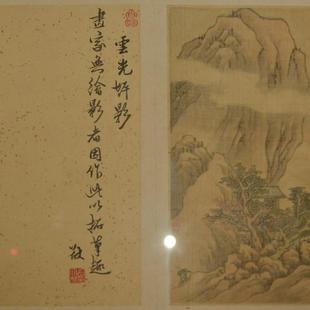 雲光影
畫家無繪影者因作此以拓筆趣